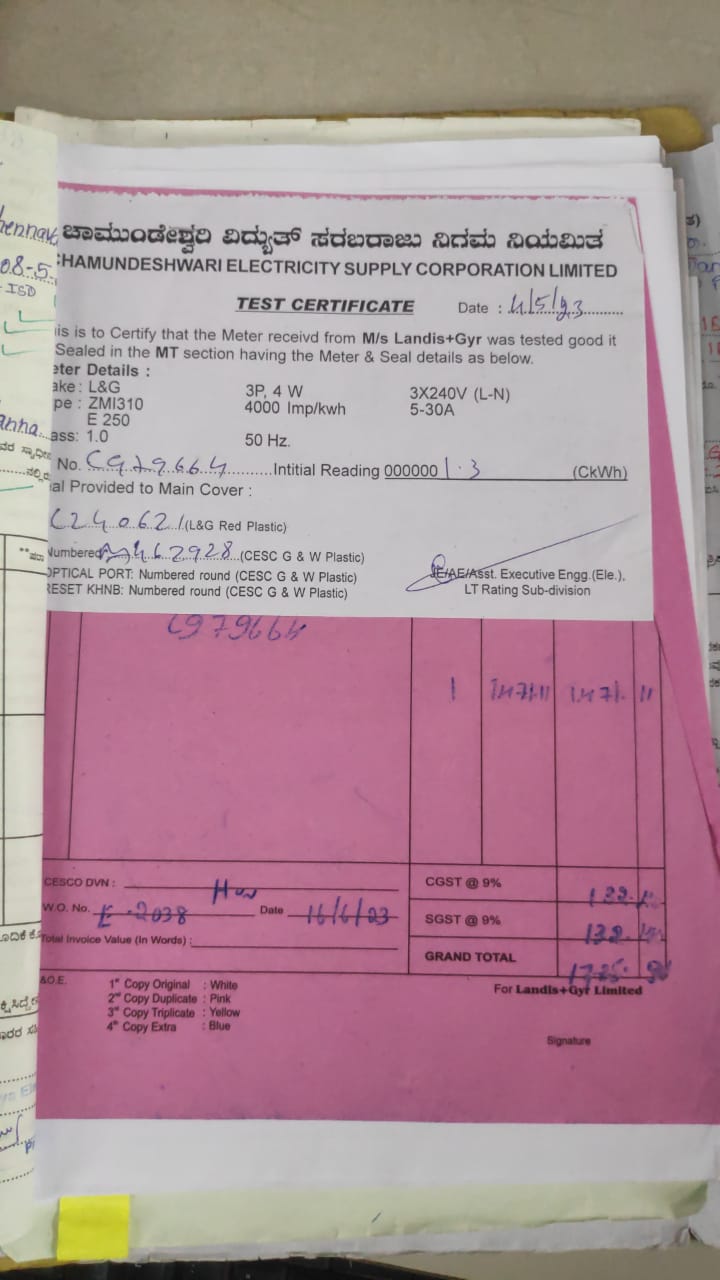 ಚಾಮುಂಡೇಶ್ವರಿ ವಿದ್ಯುತ್ ಸರಬರಾಜು ನಿಗಮ ನಿಯಮಿತ
CHAMUNDESHWARI ELECTRICITY SUPPLY CORPORATION LIMITED
TEST CERTIFICATE
Date : 4/5/23
is is to Certify that the Meter receivd from M/s Landis+Gyr was tested good it
Sealed in the MT section having the Meter & Seal details as below.
eter Details :
ake : L&G 3P, 4 W 3X240V (L-N)
pe : ZMI310 4000 Imp/kwh 5-30A
E 250
ass: 1.0 50 Hz.
No. C979664 Intitial Reading 000000 1.3 (CkWh)
al Provided to Main Cover :
C240621 (L&G Red Plastic)
Numbered 462928 (CESC G & W Plastic)
OPTICAL PORT: Numbered round (CESC G & W Plastic)
RESET KHNB: Numbered round (CESC G & W Plastic)
JE/AE/Asst. Executive Engg.(Ele.),
LT Rating Sub-division
C979664
1 1471.11 1471. 11
CESCO DVN :
CGST @ 9% 132.
W.O. No. E-2038 Date 16/6/23
SGST @ 9% 132.
Total Invoice Value (In Words) :
GRAND TOTAL 1735.
&O.E.
For Landis+Gyr Limited
1st Copy Original : White
2nd Copy Duplicate : Pink
3rd Copy Triplicate : Yellow
4th Copy Extra : Blue
Signature